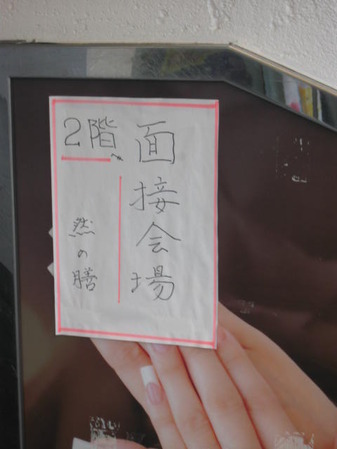 面接会場
2階へ
然の膳